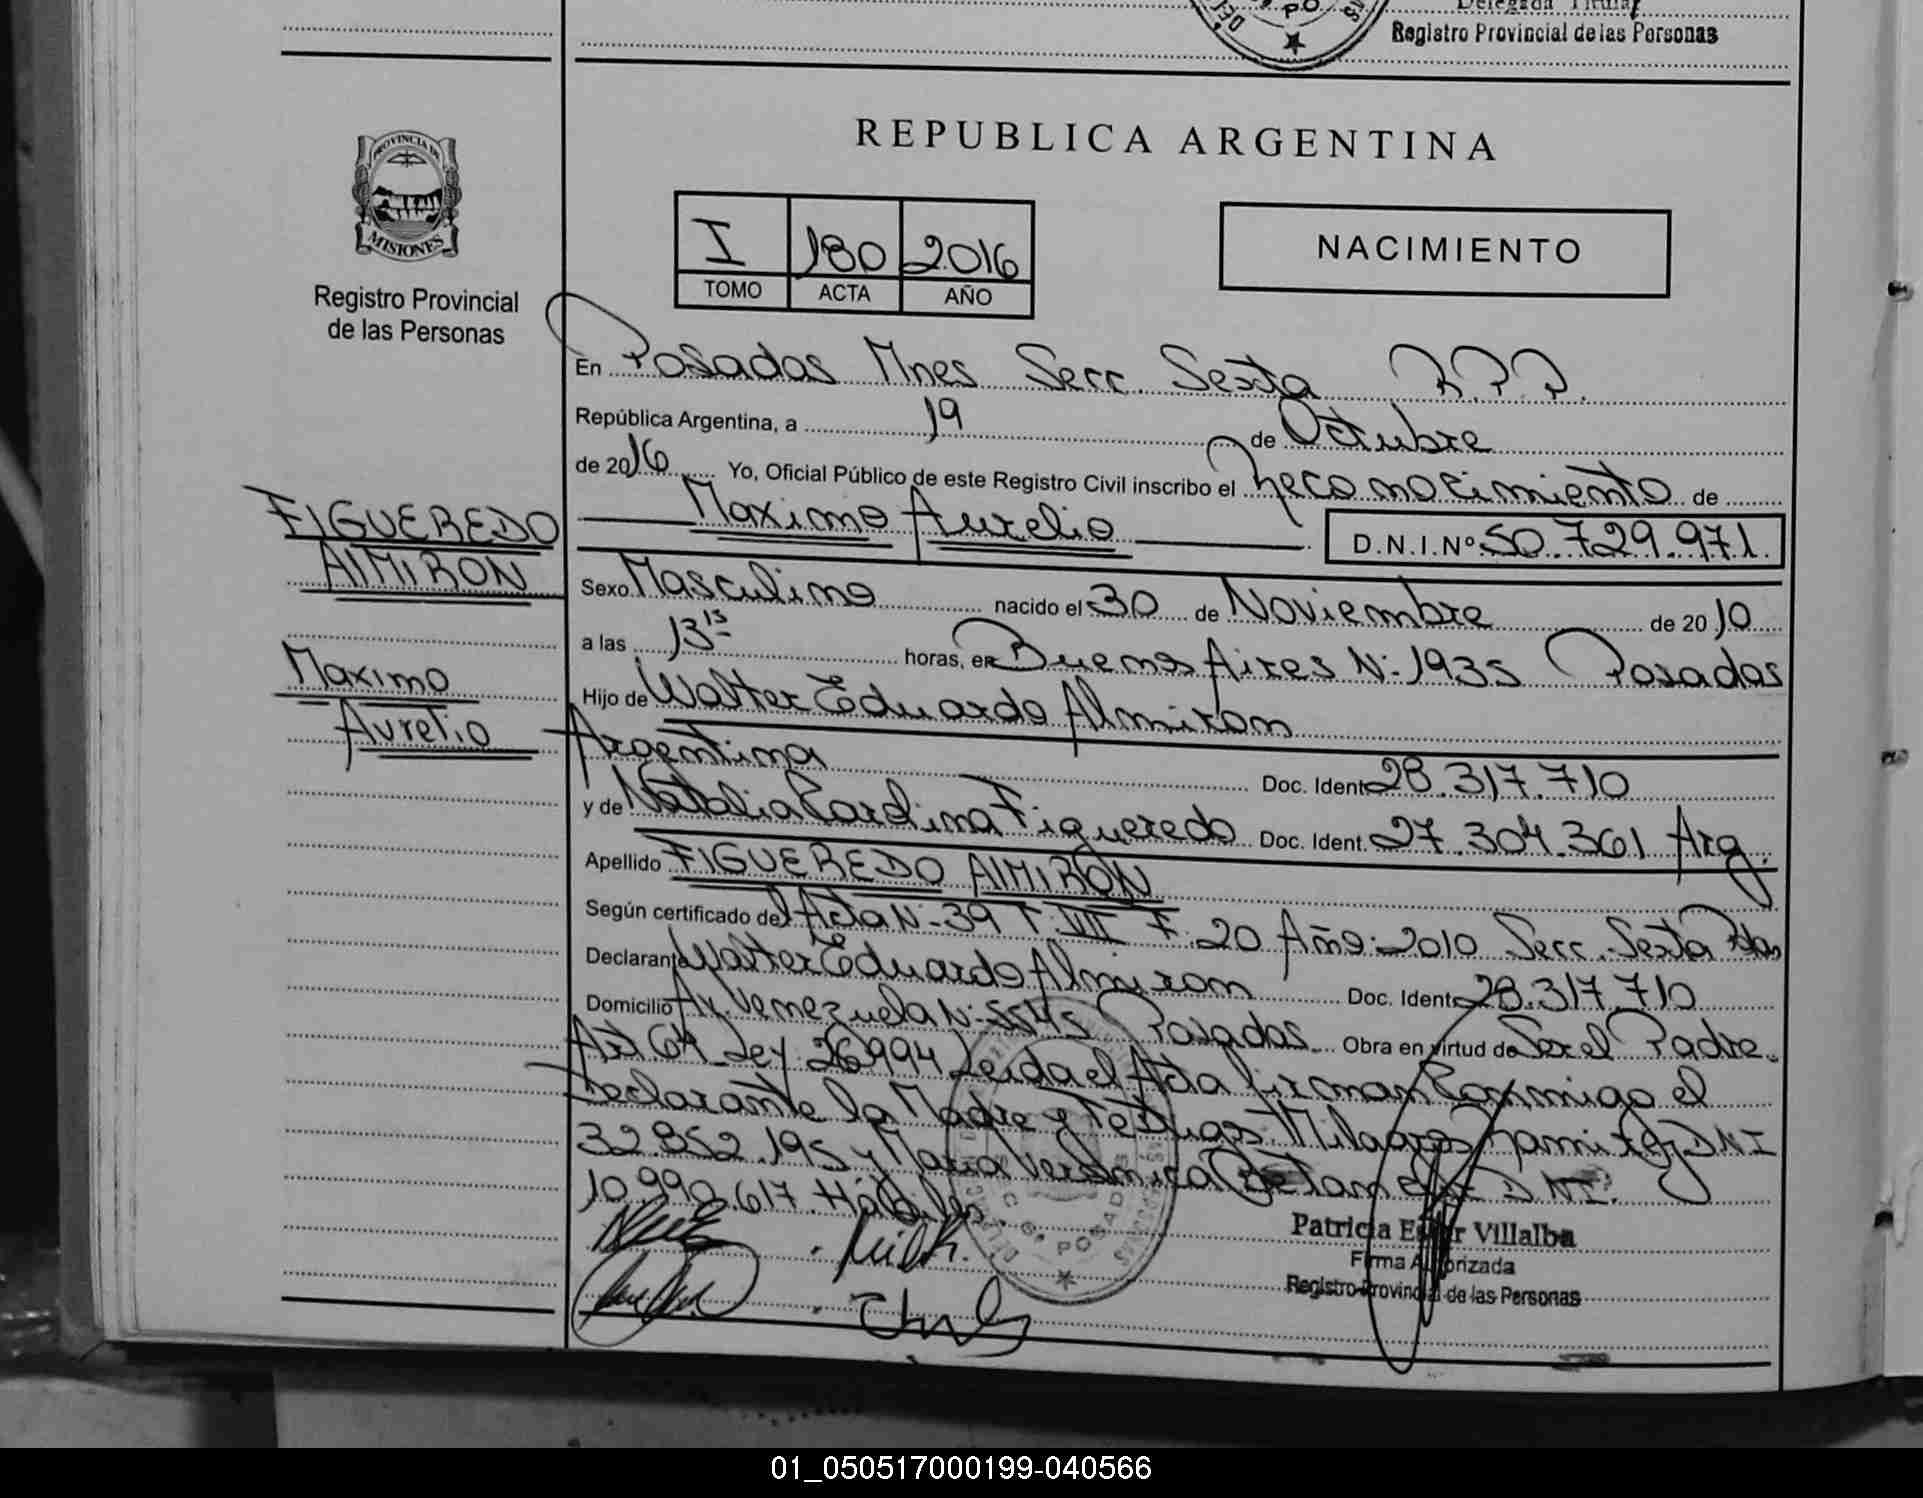 Delegada Titular
Registro Provincial de las Personas
PROVINCIA DE
MISIONES
Registro Provincial
de las Personas
REPUBLICA ARGENTINA
I 180 2016
TOMO ACTA AÑO
NACIMIENTO
En Posadas Mnes Secc. Sexta R.P.P.
República Argentina, a 19 de Octubre
de 2016 Yo, Oficial Público de este Registro Civil inscribo el Reconocimiento de
Maximo Aurelio D.N.I.Nº 50.729.971.
FIGUEREDO
AlMiRON
Maximo
Aurelio
Sexo Masculino nacido el 30 de Noviembre de 2010
a las 13 15 horas, en Buenos Aires N: 1935 Posadas
Hijo de Walter Eduardo Almiron
Argentina Doc. Ident. 28.317.710
y de Natalia Carolina Figueredo Doc. Ident. 27.304.361 Arg.
Apellido FIGUEREDO AlMiRON
Según certificado del Acta N: 39 T: VII F: 20 Año: 2010 Secc. Sexta Pdas
Declarante Walter Eduardo Almiron Doc. Ident. 28.317.710
Domicilio Av. Venezuela N: 5545 Posadas Obra en virtud de Ser el Padre.
Art 64 Ley 26994 Leida el Acta firman Conmigo el
Declarante la Madre y Testigos Milagros Ramirez DNI
32.852.195 y Maria Veronica DNI.
10.990.617 Hábiles.
Patricia Ester Villalba
Firma Autorizada
Registro Provincial de las Personas
01_050517000199-040566